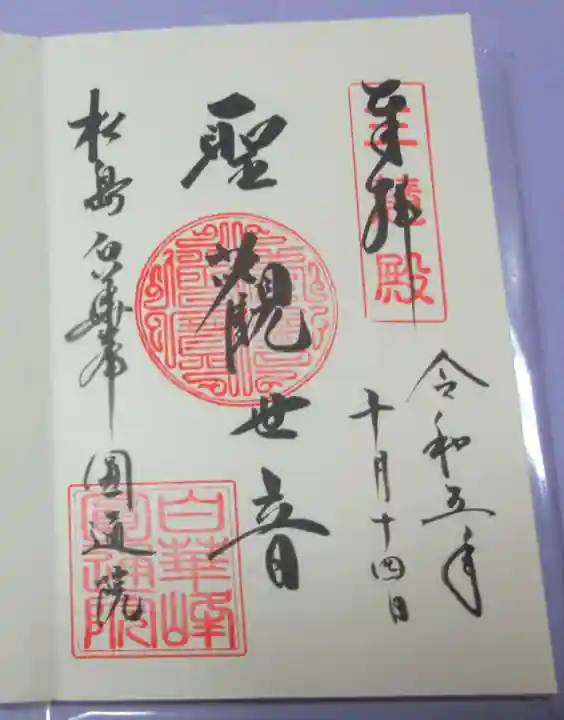 奉拝
三慧殿
令和五年
十月十四日
聖観世音
松島白華峯圓通院
白華峰
圓通院